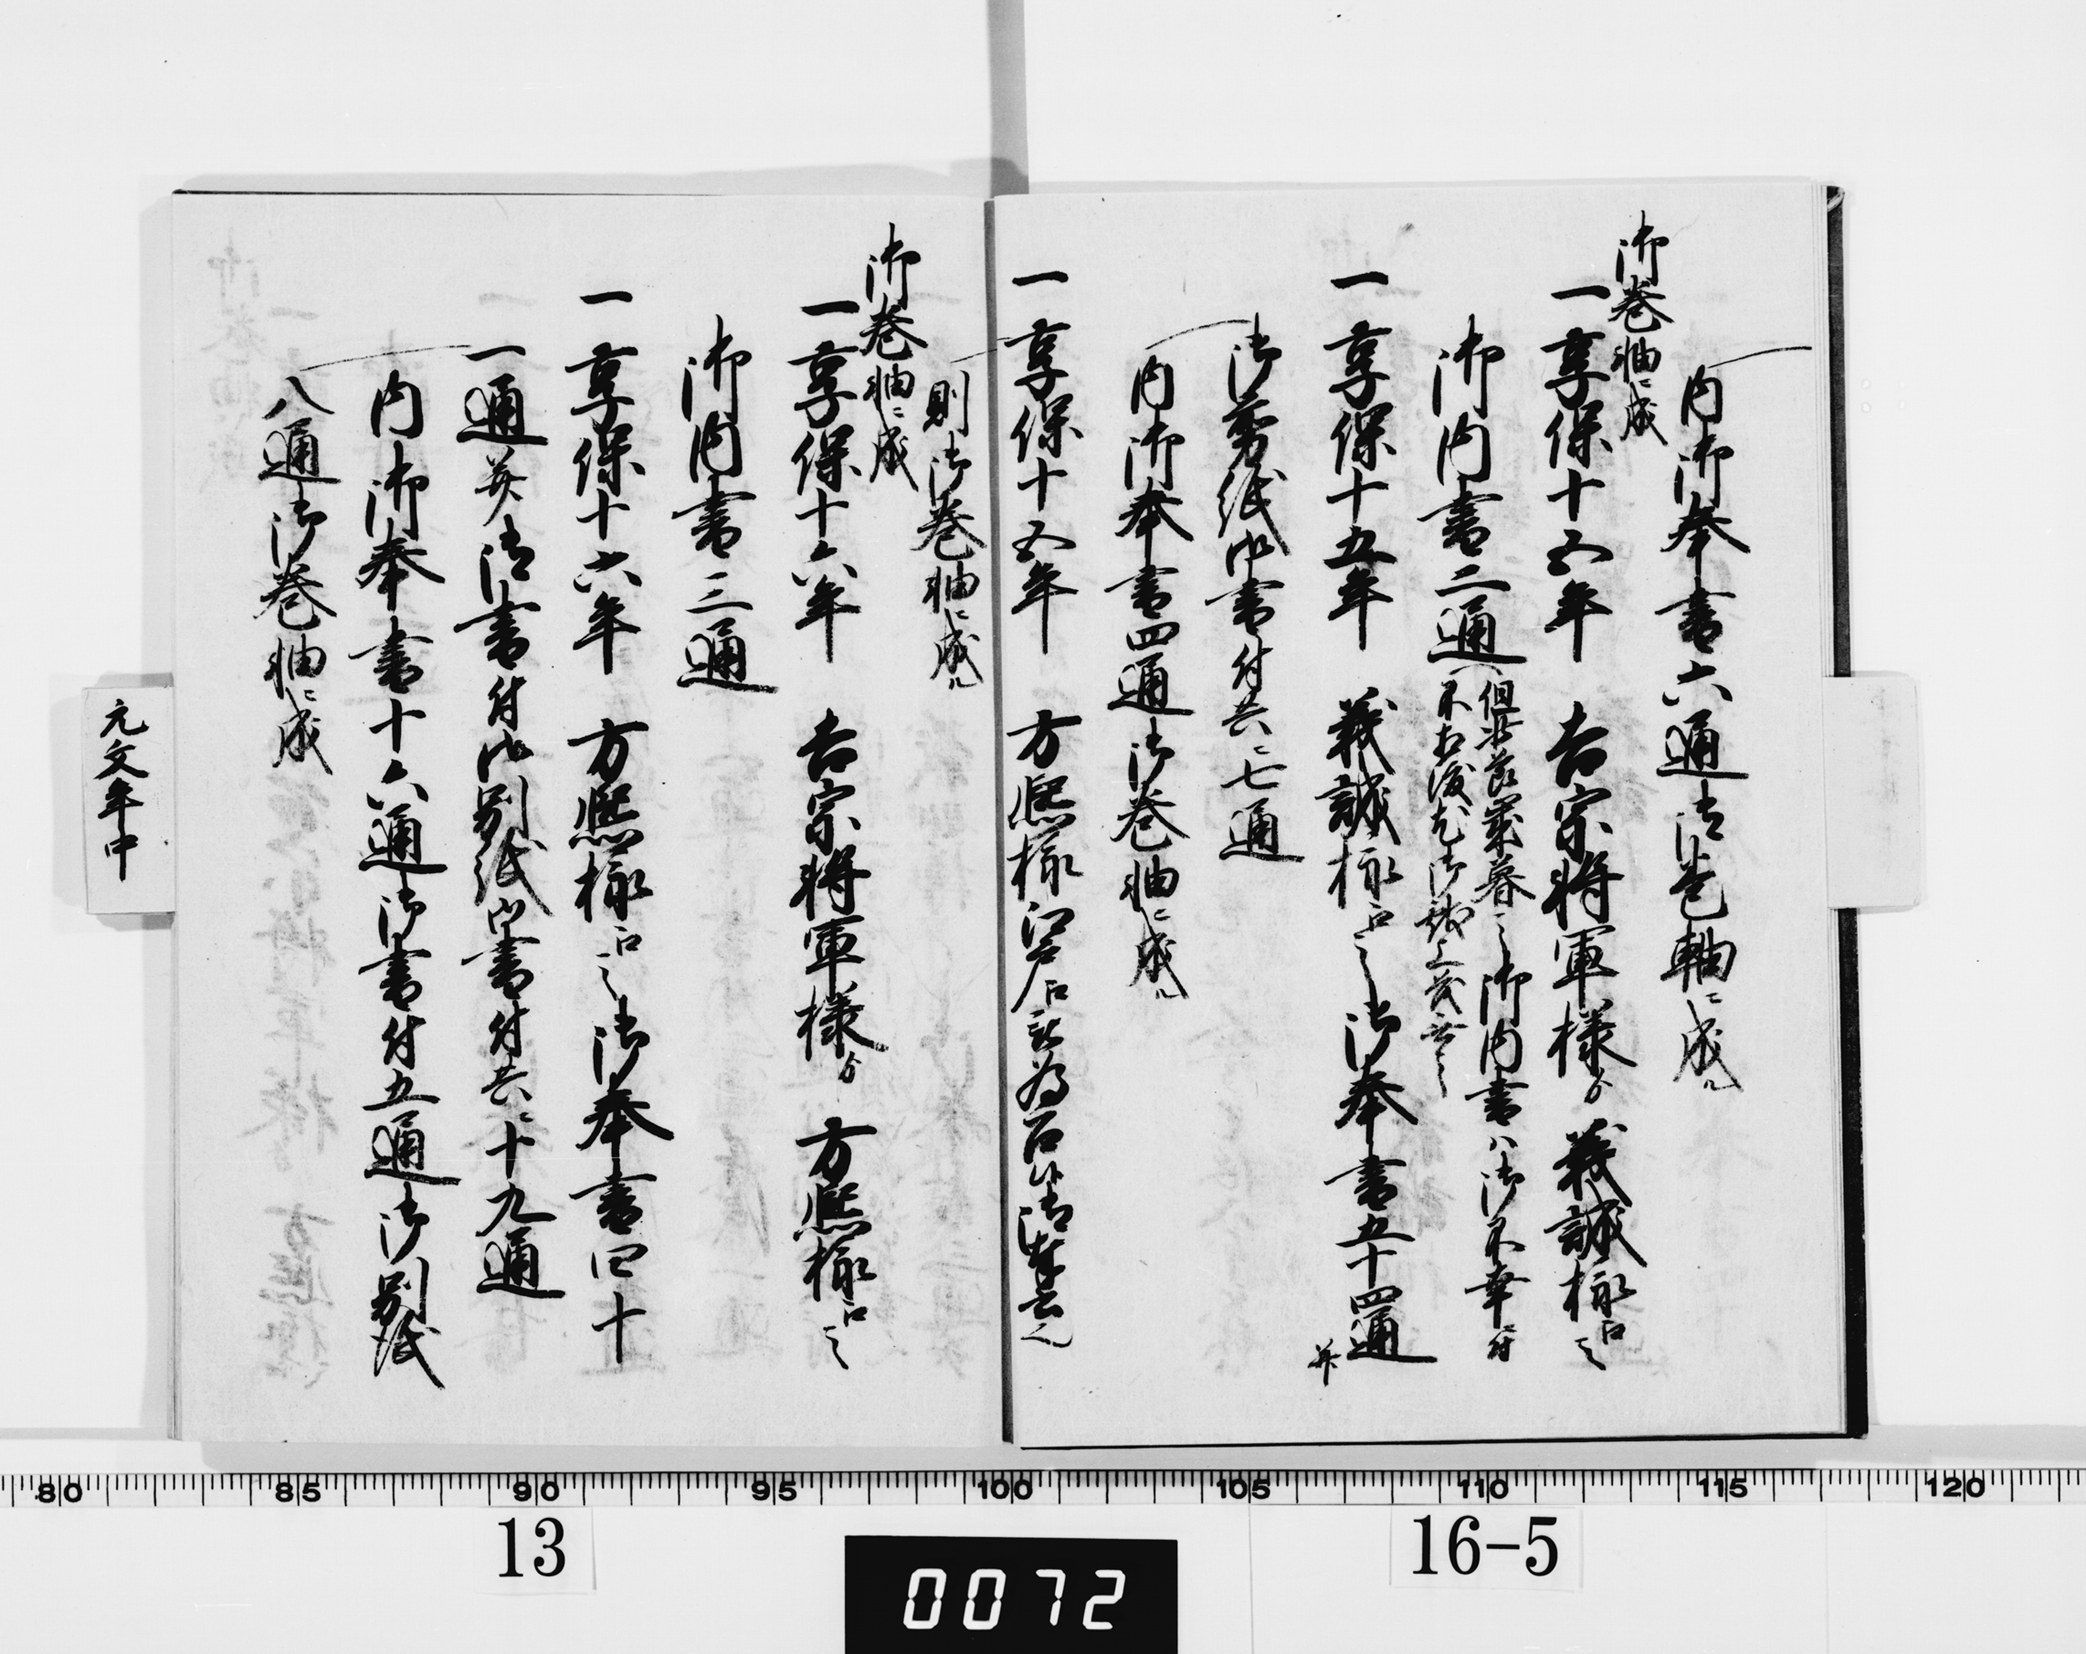 内御奉書六通御巻軸ニ成ル
御巻軸ニ成
一享保十五年　吉宗将軍様ゟ　義誠様江之
御内書二通
但此節歳暮之御内書ハ御不幸ニ付
一享保十五年　義誠様江之御奉書五十四通并
御剪紙御書付共ニ七通
内御奉書四通御巻軸ニ成ル
一享保十五年　方熈様江戸江
則御巻軸ニ成ル
御巻軸ニ成
一享保十六年　吉宗将軍様ゟ　方熈様江之
御内書三通
一享保十六年　方熈様江之御奉書四十
一通并御書付御別紙御書付共ニ十九通
内御奉書十六通御書付五通御別紙
八通御巻軸ニ成
元文年中
80 85 90 95 100 105 110 115 120
13
0072
16-5